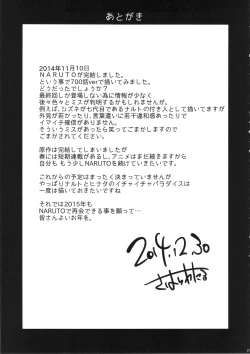 あとがき
2014年11月10日
NARUTOが完結しました。
という事で700話verで描いてみました。
どうだったでしょうか?
最終回しか登場しない為に情報が少なく
後々色々とミスが判明するかもしれませんが。
例えば、シズネが七代目であるナルトの付き人として描いてますが
外見が若かったり、言葉遣いに若干違和感あったりで
イマイチ確信がありません。
そういうミスがあったら笑ってごまかしますので
ごまかされてください。
原作は完結してしまいましたが
春には短期連載があるし、アニメはまだ続きますから
自分も もう少しNARUTOを続けていきたいです。
これからの予定はまったく決まっていませんが
やっぱりナルトとヒナタのイチャイチャパラダイスは
一度は描いておきたいですよね。
それでは2015年も
NARUTOで再会できる事を願って…
皆さんよいお年を。
2014.12.30
さはらわたる